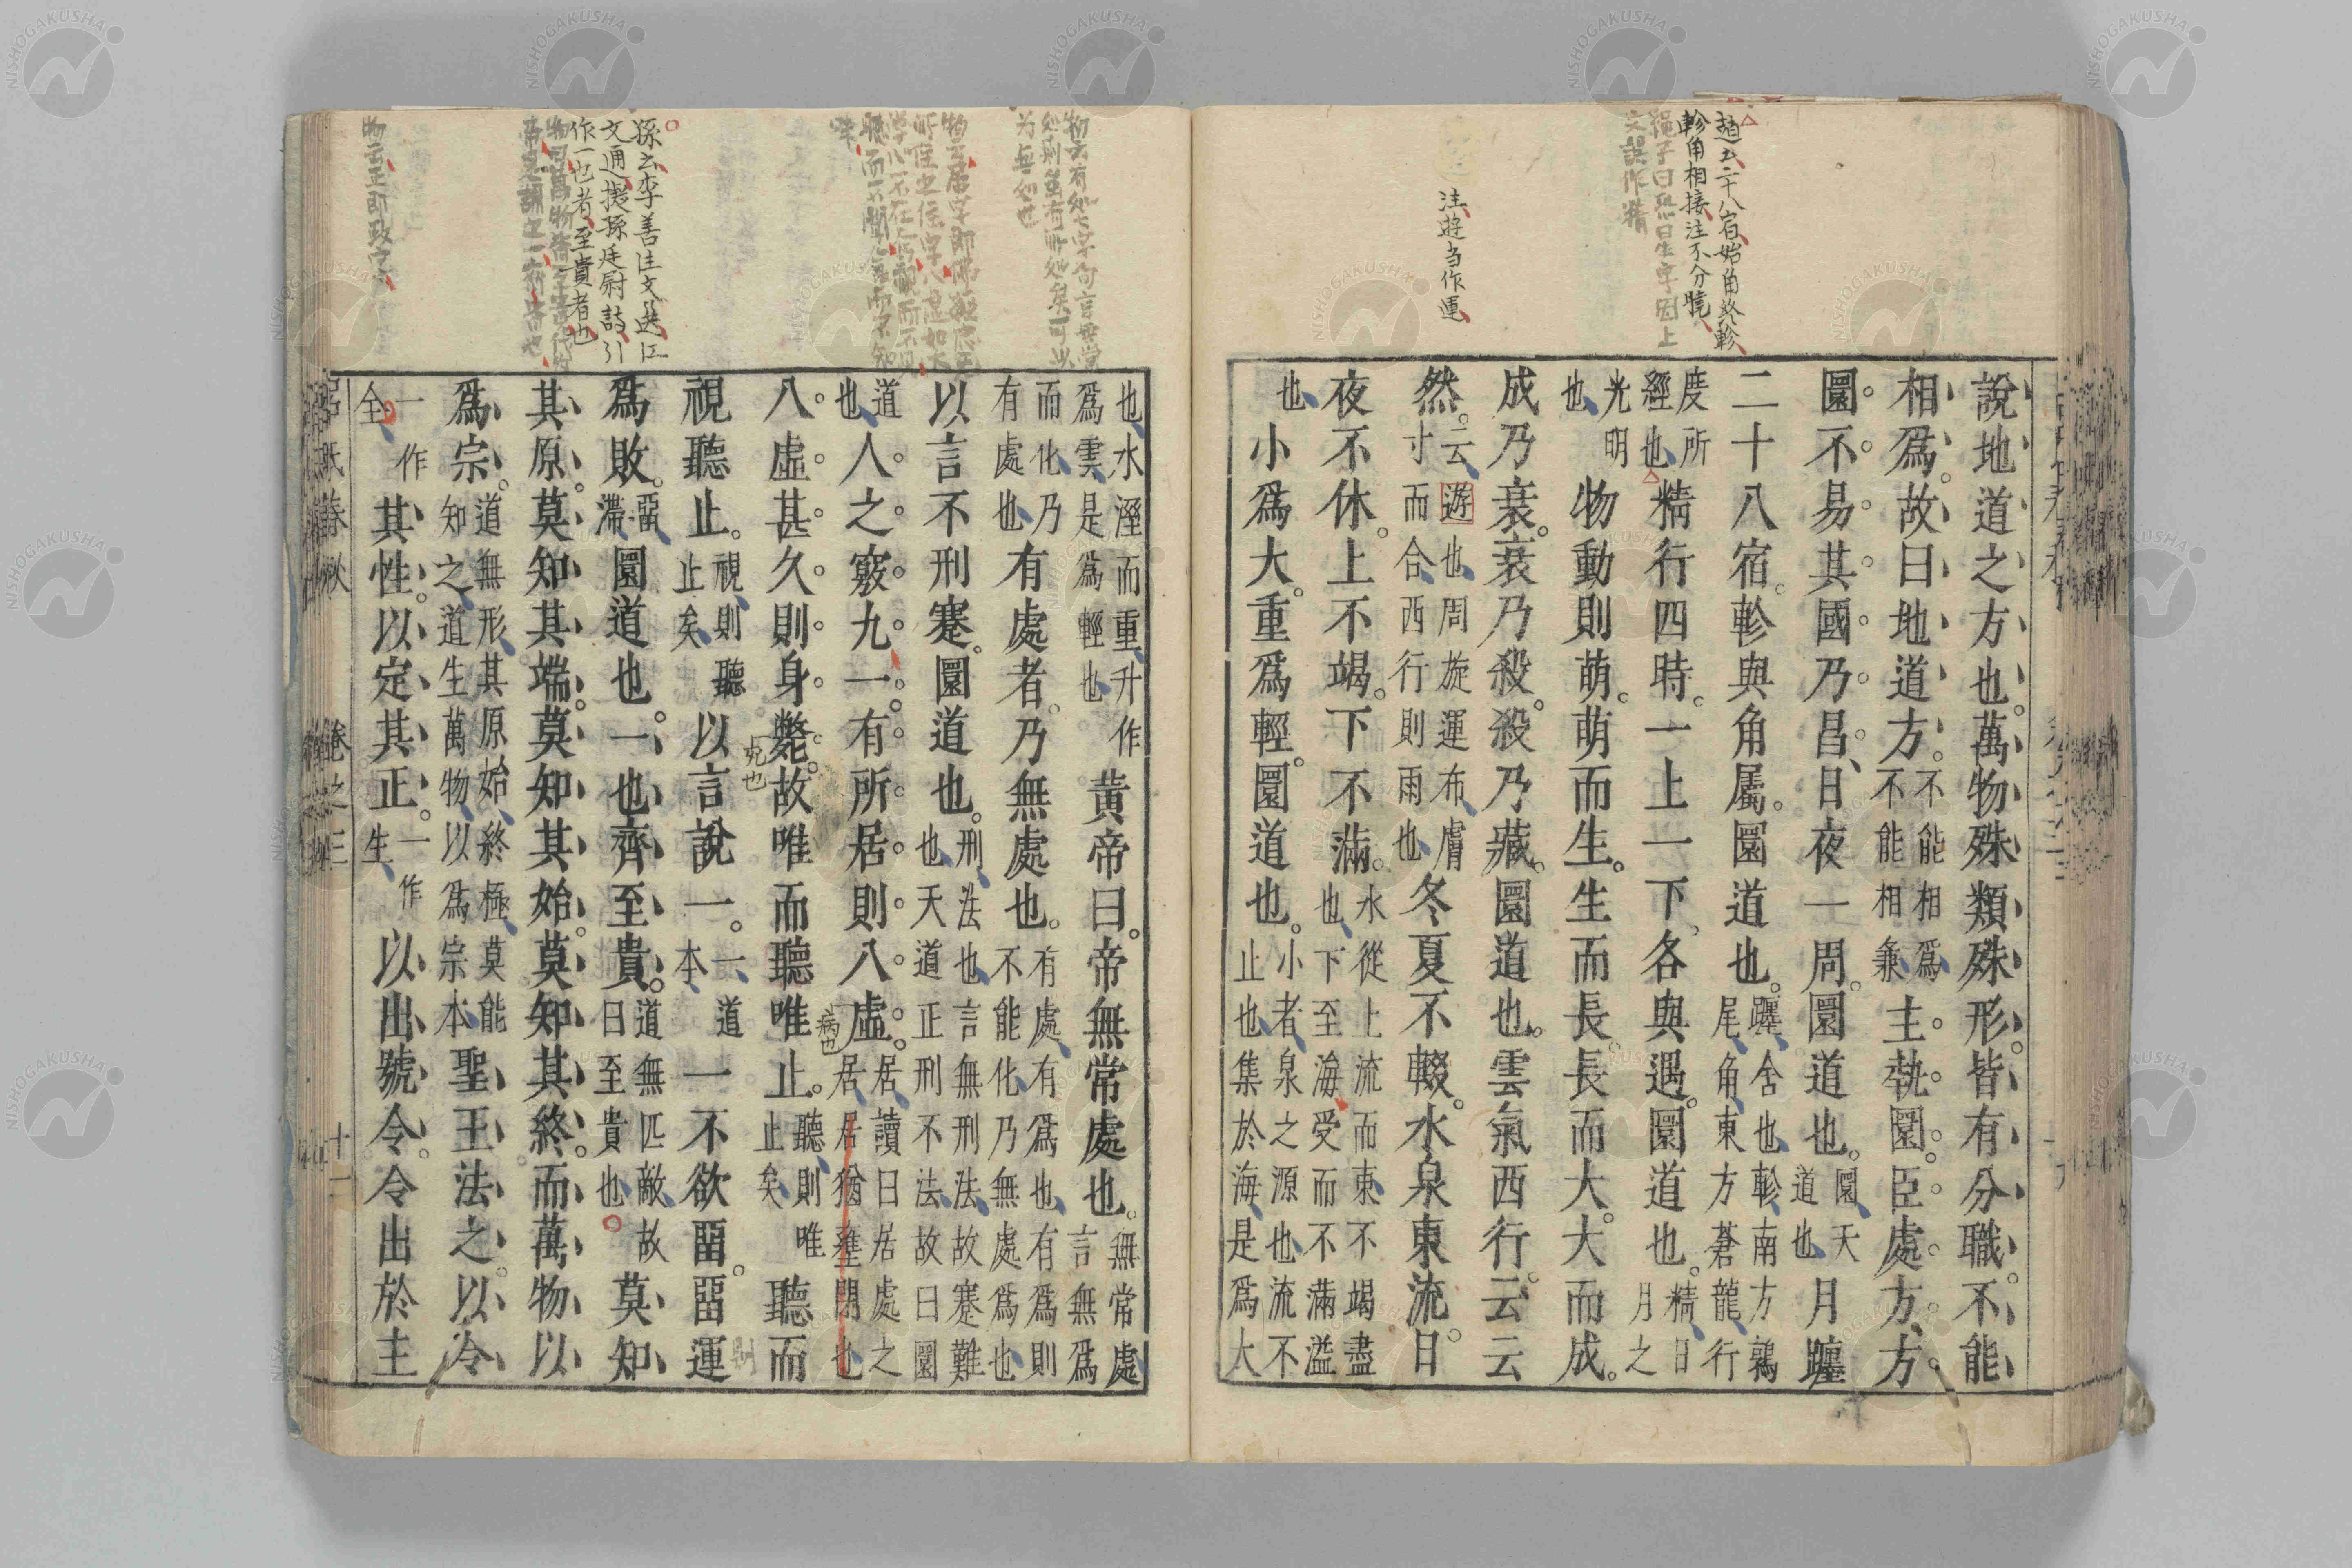 趙云二十八宿始角終軫
軫角相接注不分曉
繩子曰恐日生字因上
文誤作精
注遊当作運
說地道之方也萬物殊類殊形皆有分職不能
相爲故曰地道方不能相爲不能相兼主執圜臣處方方
圜不易其國乃昌日夜一周圜道也圜天道也月躔
二十八宿軫與角屬圜道也躔舍也軫南方鶉尾角東方蒼龍行
度所經也精行四時一上一下各與遇圜道也精日月之
光明也物動則萌萌而生生而長長而大大而成
成乃衰衰乃殺殺乃藏圜道也雲氣西行云云
然云遊也周旋運布膚寸而合西行則雨也冬夏不輟水泉東流日
夜不休上不竭下不滿水從上流而東不竭盡也下至海受而不滿溢
也小爲大重爲輕圜道也小者泉之源也流不止也集於海是爲大
孫云李善注文選江
文通擬孫廷尉詩引
作一也者至貴者也
物云正即政字
也水溼而重升作爲雲是爲輕也黃帝曰帝無常處也無常處言無爲
而化乃有處也有處者乃無處也有處有爲也有爲則不能化乃無處爲也
以言不刑蹇圜道也刑法也言無刑法故蹇難也天道正刑不法故曰圜
道也人之竅九一有所居則八虛居讀曰居處之居居猶壅閉也
病也
八虛甚久則身斃故唯而聽唯止聽則唯止矣聽而
死也
視聽止視則聽止矣以言說一一道本一不欲留留運
爲敗留滯圜道也一也齊至貴道無匹敵故曰至貴也莫知
其原莫知其端莫知其始莫知其終而萬物以
爲宗道無形其原始終極莫能知之道生萬物以爲宗本聖王法之以令
一作全其性以定其正一作生以出號令令出於主
呂氏春秋 卷之三 十一